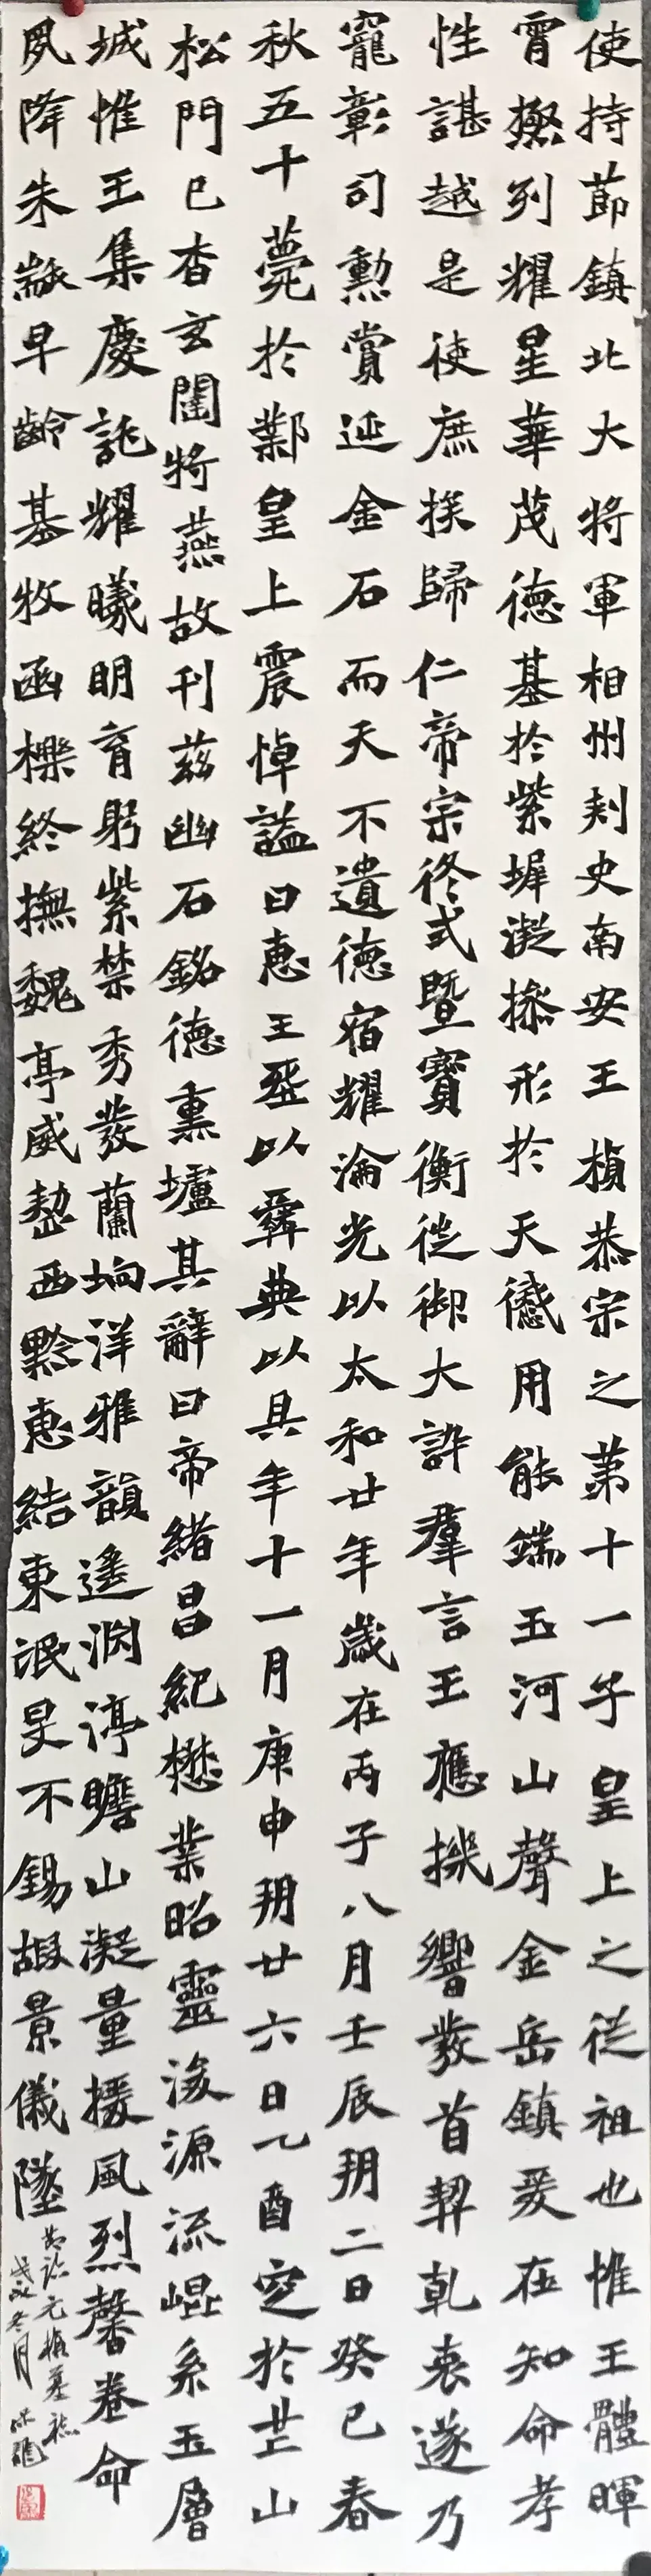 使持節鎮北大將軍相州刾史南安王楨恭宗之第十一子皇上之從祖也惟王體暉
霄極列耀星華茂德基於紫墀凝操形於天感用能端玉河山聲金岳鎮爰在知命孝
性諶越是使庶族歸仁帝宗攸式暨寶衡徙御大訝羣言王應機響發首契乾衷遂乃
寵彰司勲賞延金石而天不遺德宿耀淪光以太和廿年歲在丙子八月壬辰朔二日癸巳春
秋五十薨於鄴皇上震悼謚曰惠王葬以彝典以其年十一月庚申朔廿六日乙酉窆於芒山
松門已杳玄闥將蕪故刊茲幽石銘德熏壚其辭曰帝緒昌紀懋業昭靈浚源流崐系玉層
城惟王集慶託耀曦明育躬紫禁秀發蘭坰洋雅韻遙淵渟瞻山凝量援風烈馨卷命
夙降朱黻早齡基牧函櫟終撫魏亭威整西黔惠結東氓旻不錫嘏景儀墜
節臨元楨墓志
戊戌冬月